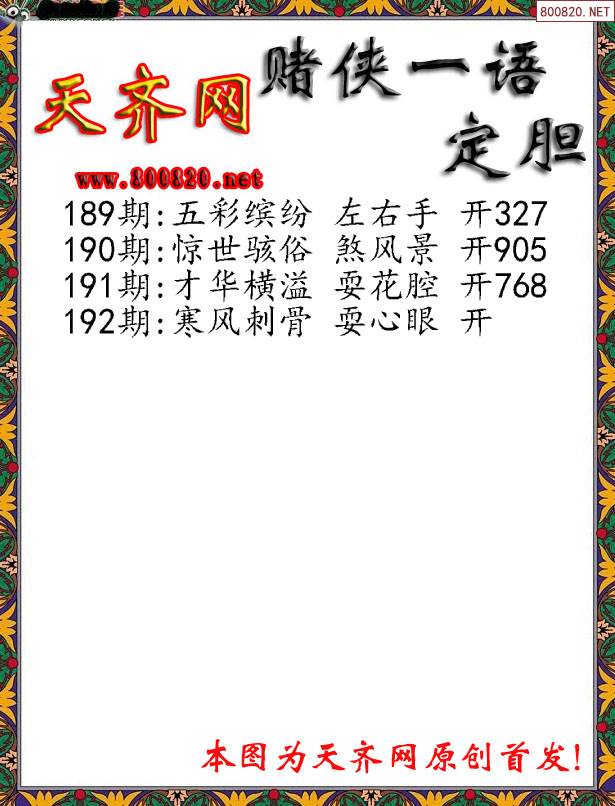 800820.NET
天齐网
赌侠一语
定胆
www.800820.net
189期:五彩缤纷 左右手 开327
190期:惊世骇俗 煞风景 开905
191期:才华横溢 耍花腔 开768
192期:寒风刺骨 耍心眼 开
本图为天齐网原创首发!